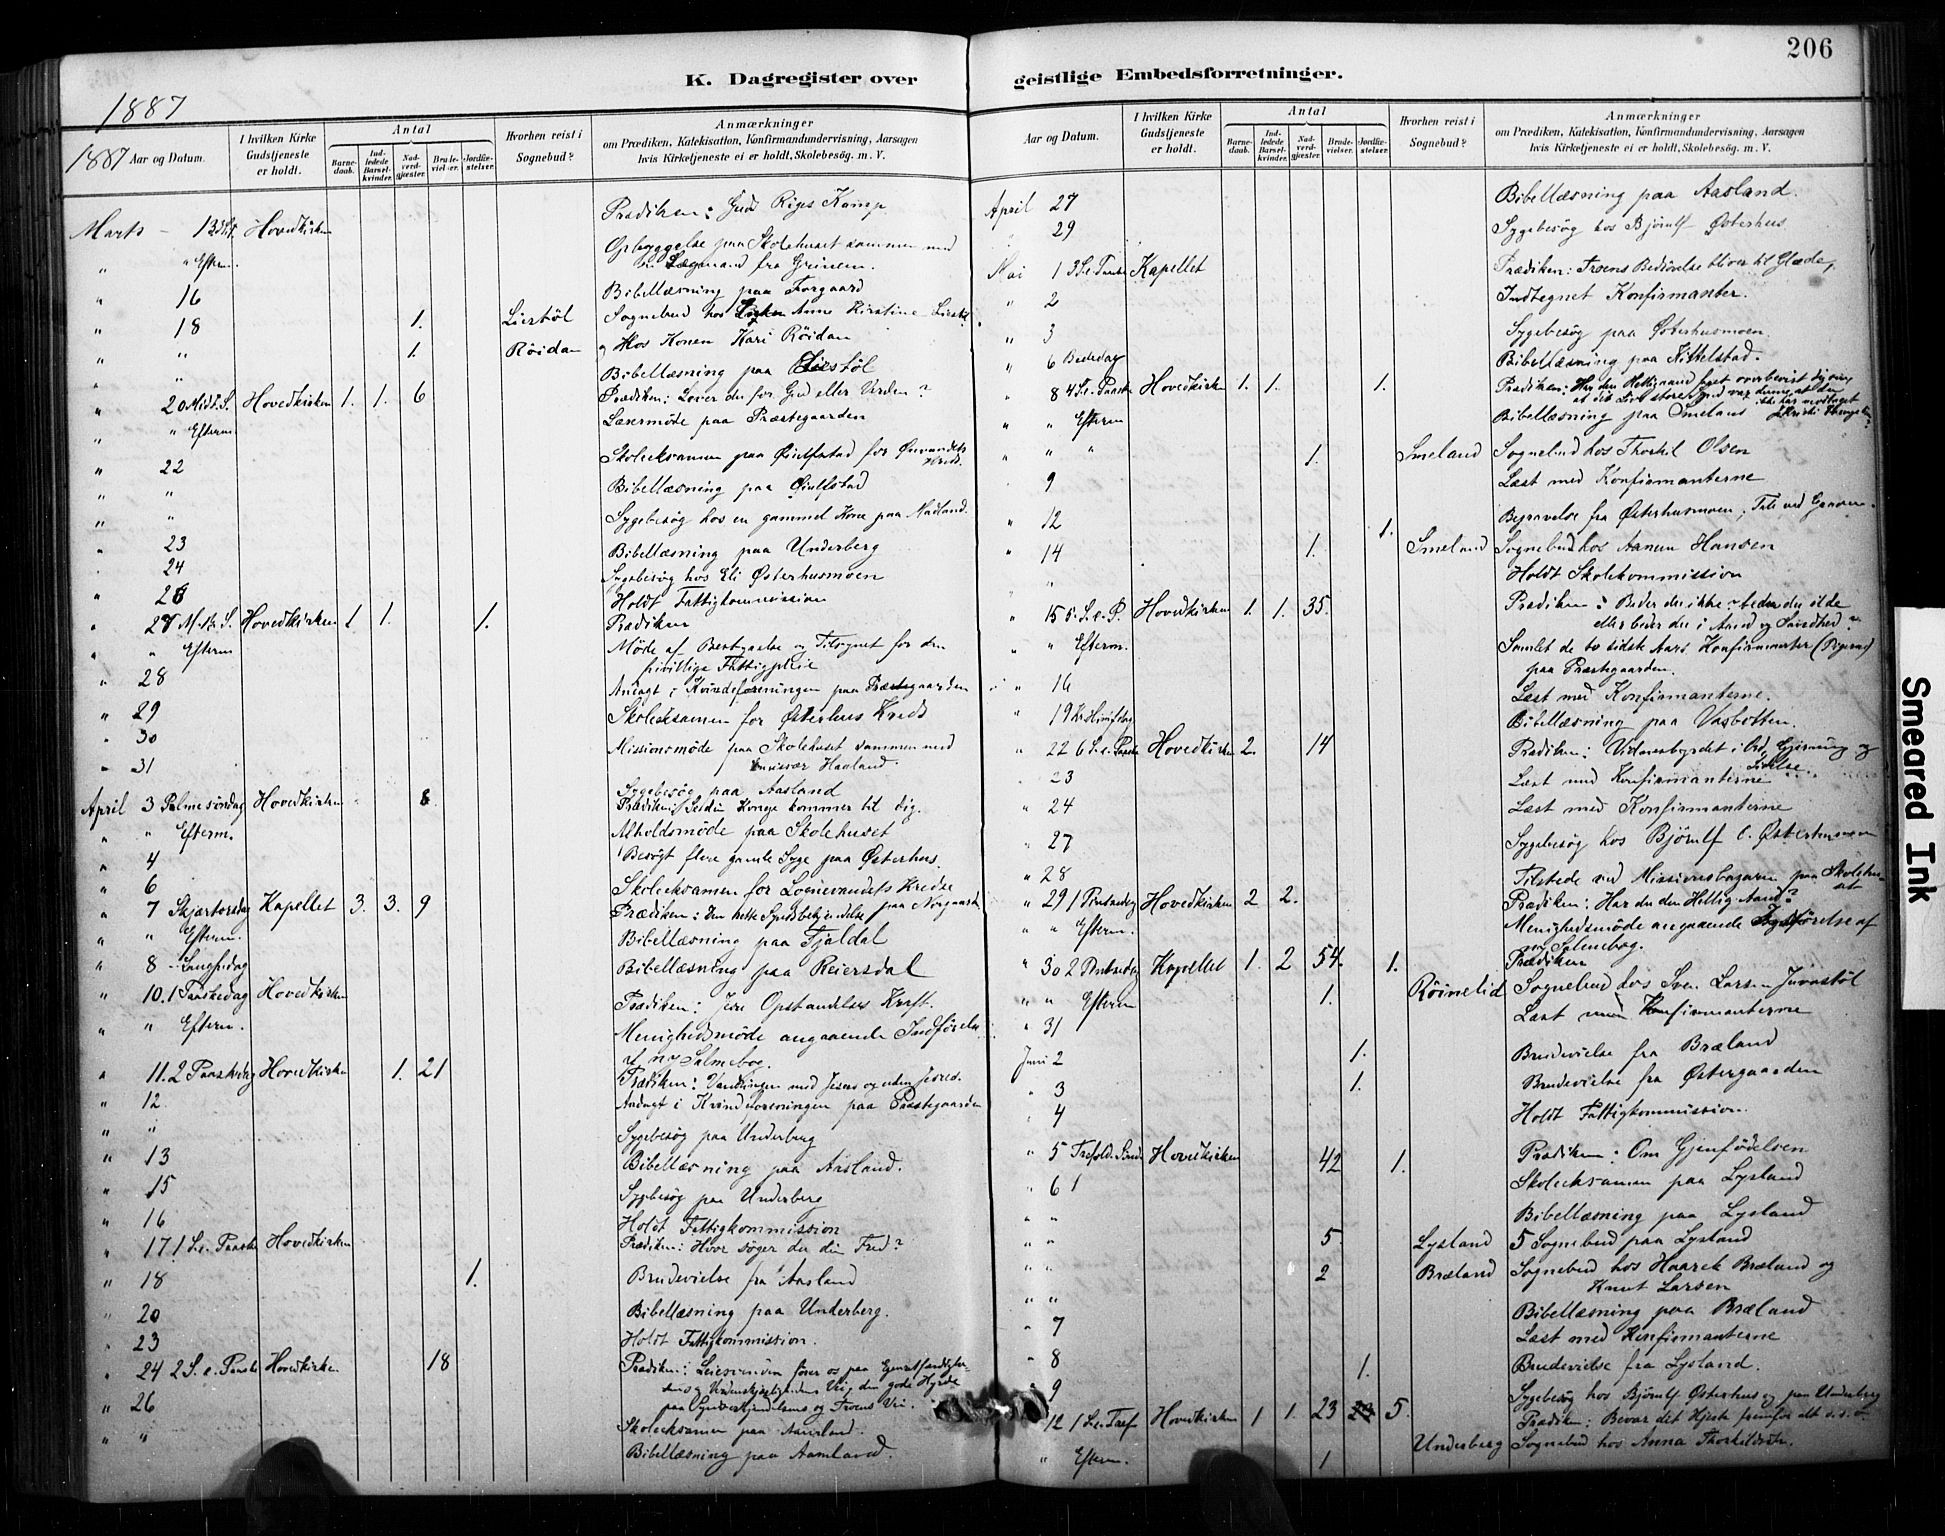 206
K. Dagregister over
geistlige Embedsforretninger.
1887
1887 Aar og Datum.
I hvilken Kirke Gudstjeneste er holdt.
Antal
Barnedaab.
Indledede Barselkvinder.
Nadverdgjæster.
Brudevielser.
Jordfæstelser.
Hvorhen reist i Sognebud?
Anmærkninger
om Prædiken, Katekisation, Konfirmandundervisning, Aarsagen hvis Kirketjeneste ei er holdt, Skolebesøg. m. V.
Marts - 13 Hovedkirken Prædiken: Guds Riges Kamp
" " Efterm. Opbyggelse paa Skolehuset sammen med
Lægmand fra
" 16 Bibellæsning paa Forgaard
" 18 1. Liestöl Sognebud hos Anne Kirstine
" " 1. Röidan og Hos Konen Kari Röidan
" " Bibellæsning paa Liestöl
" 20 Midf. S. Hovedkirken 1. 1. 6 Prædiken: Lever du for Gud eller Verden?
" " Efterm Læsermöde paa Præstegaarden
" 22 Skoleeksamen paa Øiulfstad for
" " Bibellæsning paa Øiulfstad
" " Sygebesøg hos en gammel Kone paa
" 23 Bibellæsning paa Underberg
" 24 Sygebesøg hos Eli Østerhusmoen
" 26 Holdt Fattigkommission
" 27 M. B. S. Hovedkirken 1 1. 1. Prædiken
" " Efterm Möde af Bestyrelse og Tilsynet for den
frivillige Fattigpleie
" 28 Andagt i Kvindeforeningen paa Præstegaarden
" 29 Skoleeksamen for Østerhus Kreds
" 30 Missionsmöde paa Skolehuset sammen med
Haaland.
" 31 Sygebesøg paa Aasland
April 3 Palmesöndag Hovedkirken 8 Prædiken: Se din Konge kommer til dig.
" " Efterm. Afholdsmöde paa Skolehuset
" 4 Besøgt flere gamle Syge paa Østerhus.
" 6 Skoleeksamen for Kreds
" 7 Skjærtorsdag Kapellet 3. 3. 9 Prædiken: Den rette Syndsbekjendelse paa
" " Efterm. Bibellæsning paa Fjaldal
" 8 Langfredag Bibellæsning paa Reiersdal
" 10. 1 Paaskedag Hovedkirken Prædiken: Jesu Opstandelses Kraft.
" " Efterm. Menighedsmöde angaaende Indförelse
af ny Salmebog.
" 11. 2 Paaskedag Hovedkirken 1. 21 Prædiken: Vandringen med Jesus og uden Jesus.
" 12 Andagt i Kvindeforeningen paa Præstegaarden
" " Sygebesøg paa Underberg
" 13 Bibellæsning paa Aasland.
" 15 Sygebesøg paa Underberg
" 16 Holdt Fattigkommission
" 17. 1 S. e. Paaske Hovedkirken Prædiken: Hvor søger du din Fred?
" 18 1. Brudevielse fra Aasland
" 20 Bibellæsning paa Underberg.
" 23 Holdt Fattigkommission.
" 24 2 S. e. Paaske Hovedkirken 18 Prædiken:
den gode Hyrde
paa Syndserkjendelsens og Troens Vei.
" 26 Skoleeksamen paa Aamland.
" " Bibellæsning paa Aamland.
Aar og Datum.
I hvilken Kirke Gudstjeneste er holdt.
Antal
Barnedaab.
Indledede Barselkvinder.
Nadverdgjæster.
Brudevielser.
Jordfæstelser.
Hvorhen reist i Sognebud?
Anmærkninger
om Prædiken, Katekisation, Konfirmandundervisning, Aarsagen hvis Kirketjeneste ei er holdt, Skolebesøg. m. V.
April 27 Bibellæsning paa Aasland.
" 29 Sygebesøg hos Bjørulf Østerhus
Mai 1 3 S. e. Paaske Kapellet Prædiken: Troens Bedrövelse bliver til Glæde,
" 2 Indtegnet Konfirmanter.
" 3 Sygebesøg paa Østerhusmoen
" 6 Bededag Bibellæsning paa Kittelstad.
" 8 4 S. e. Paaske Hovedkirken 1. 1. 1. Prædiken: Har den Helligaand faaet overbevist dig om,
at dit Livs store Synd var denne at du
ikke har modtaget
" " Efterm Bibellæsning paa Smeland
" " " 1. Smeland Sognebud hos Thorkil Olsen
9 Læst med Konfirmanterne
" 12 1. Begravelse fra Østerhusmoen; Tale ved Graven.
" 14 1. Smeland Sognebud hos Aanun Hansen
" Holdt Skolekommission
" 15 5. S. e. P. Hovedkirken 1. 1. 35. Prædiken: Beder du ikke - beder du ilde
eller beder du i Aand og Sandhed?
" " Efterm. Samlet de to sidste Aars Konfirmanter (Pigerne)
paa Præstegaarden.
" 16 Læst med Konfirmanterne.
" 19 Kr. Himlfdag Bibellæsning paa Vasbotten.
" 22 6 S. e. Paaske Hovedkirken 2. 14 Prædiken: Vidnesbyrdet i Ord, Gjerning og
Lidelse.
23 Læst med Konfirmanterne
" 24 Læst med Konfirmanterne
" 27 Sygebesøg hos Bjørulf O. Østerhusmoen
" 28 Tilstede ved Missionsbazaren paa Skolehuset
" 29 1 Pintsedag Hovedkirken 2 2. Prædiken: Har du den Hellig Aand?
" " Efterm. Menighedsmöde angaaende Indförelse af
ny Salmebog.
" 30 2 Pintsedag Kapellet 1. 2 54. 1. Prædiken
" " Efterm 1. Röinelid Sognebud hos Sven Larsen
" 31 Læst med Konfirmanterne
Juni 2 1. Brudevielse fra Bræland
" 3 1. Brudevielse fra Østergaarden
" 4 Holdt Fattigkommission
" 5 Trefold. Sönd. Hovedkirken 42 1. Prædiken: Om Gjenfödelsen
" 6 Skoleeksamen paa Lysland
" " Bibellæsning paa Lysland
" " 5 Lysland 5 Sognebud paa Lysland
" " 2 Bræland Sognebud hos Haarek Bræland og
Knut Larsen
" " Bibellæsning paa Bræland
" 7 Læst med Konfirmanterne
" 8 1. Brudevielse fra Lysland.
" 9 Sygebesøg hos Bjørulf Østerhus og paa Underberg
12 1 S. e. Tref Hovedkirken 1 1. 23 5. Prædiken: Bevar dit Hjerte fremfor alt
" Efterm. 1 Underberg Sognebud hos Anna Thorkildsdtr.
Smeared Ink